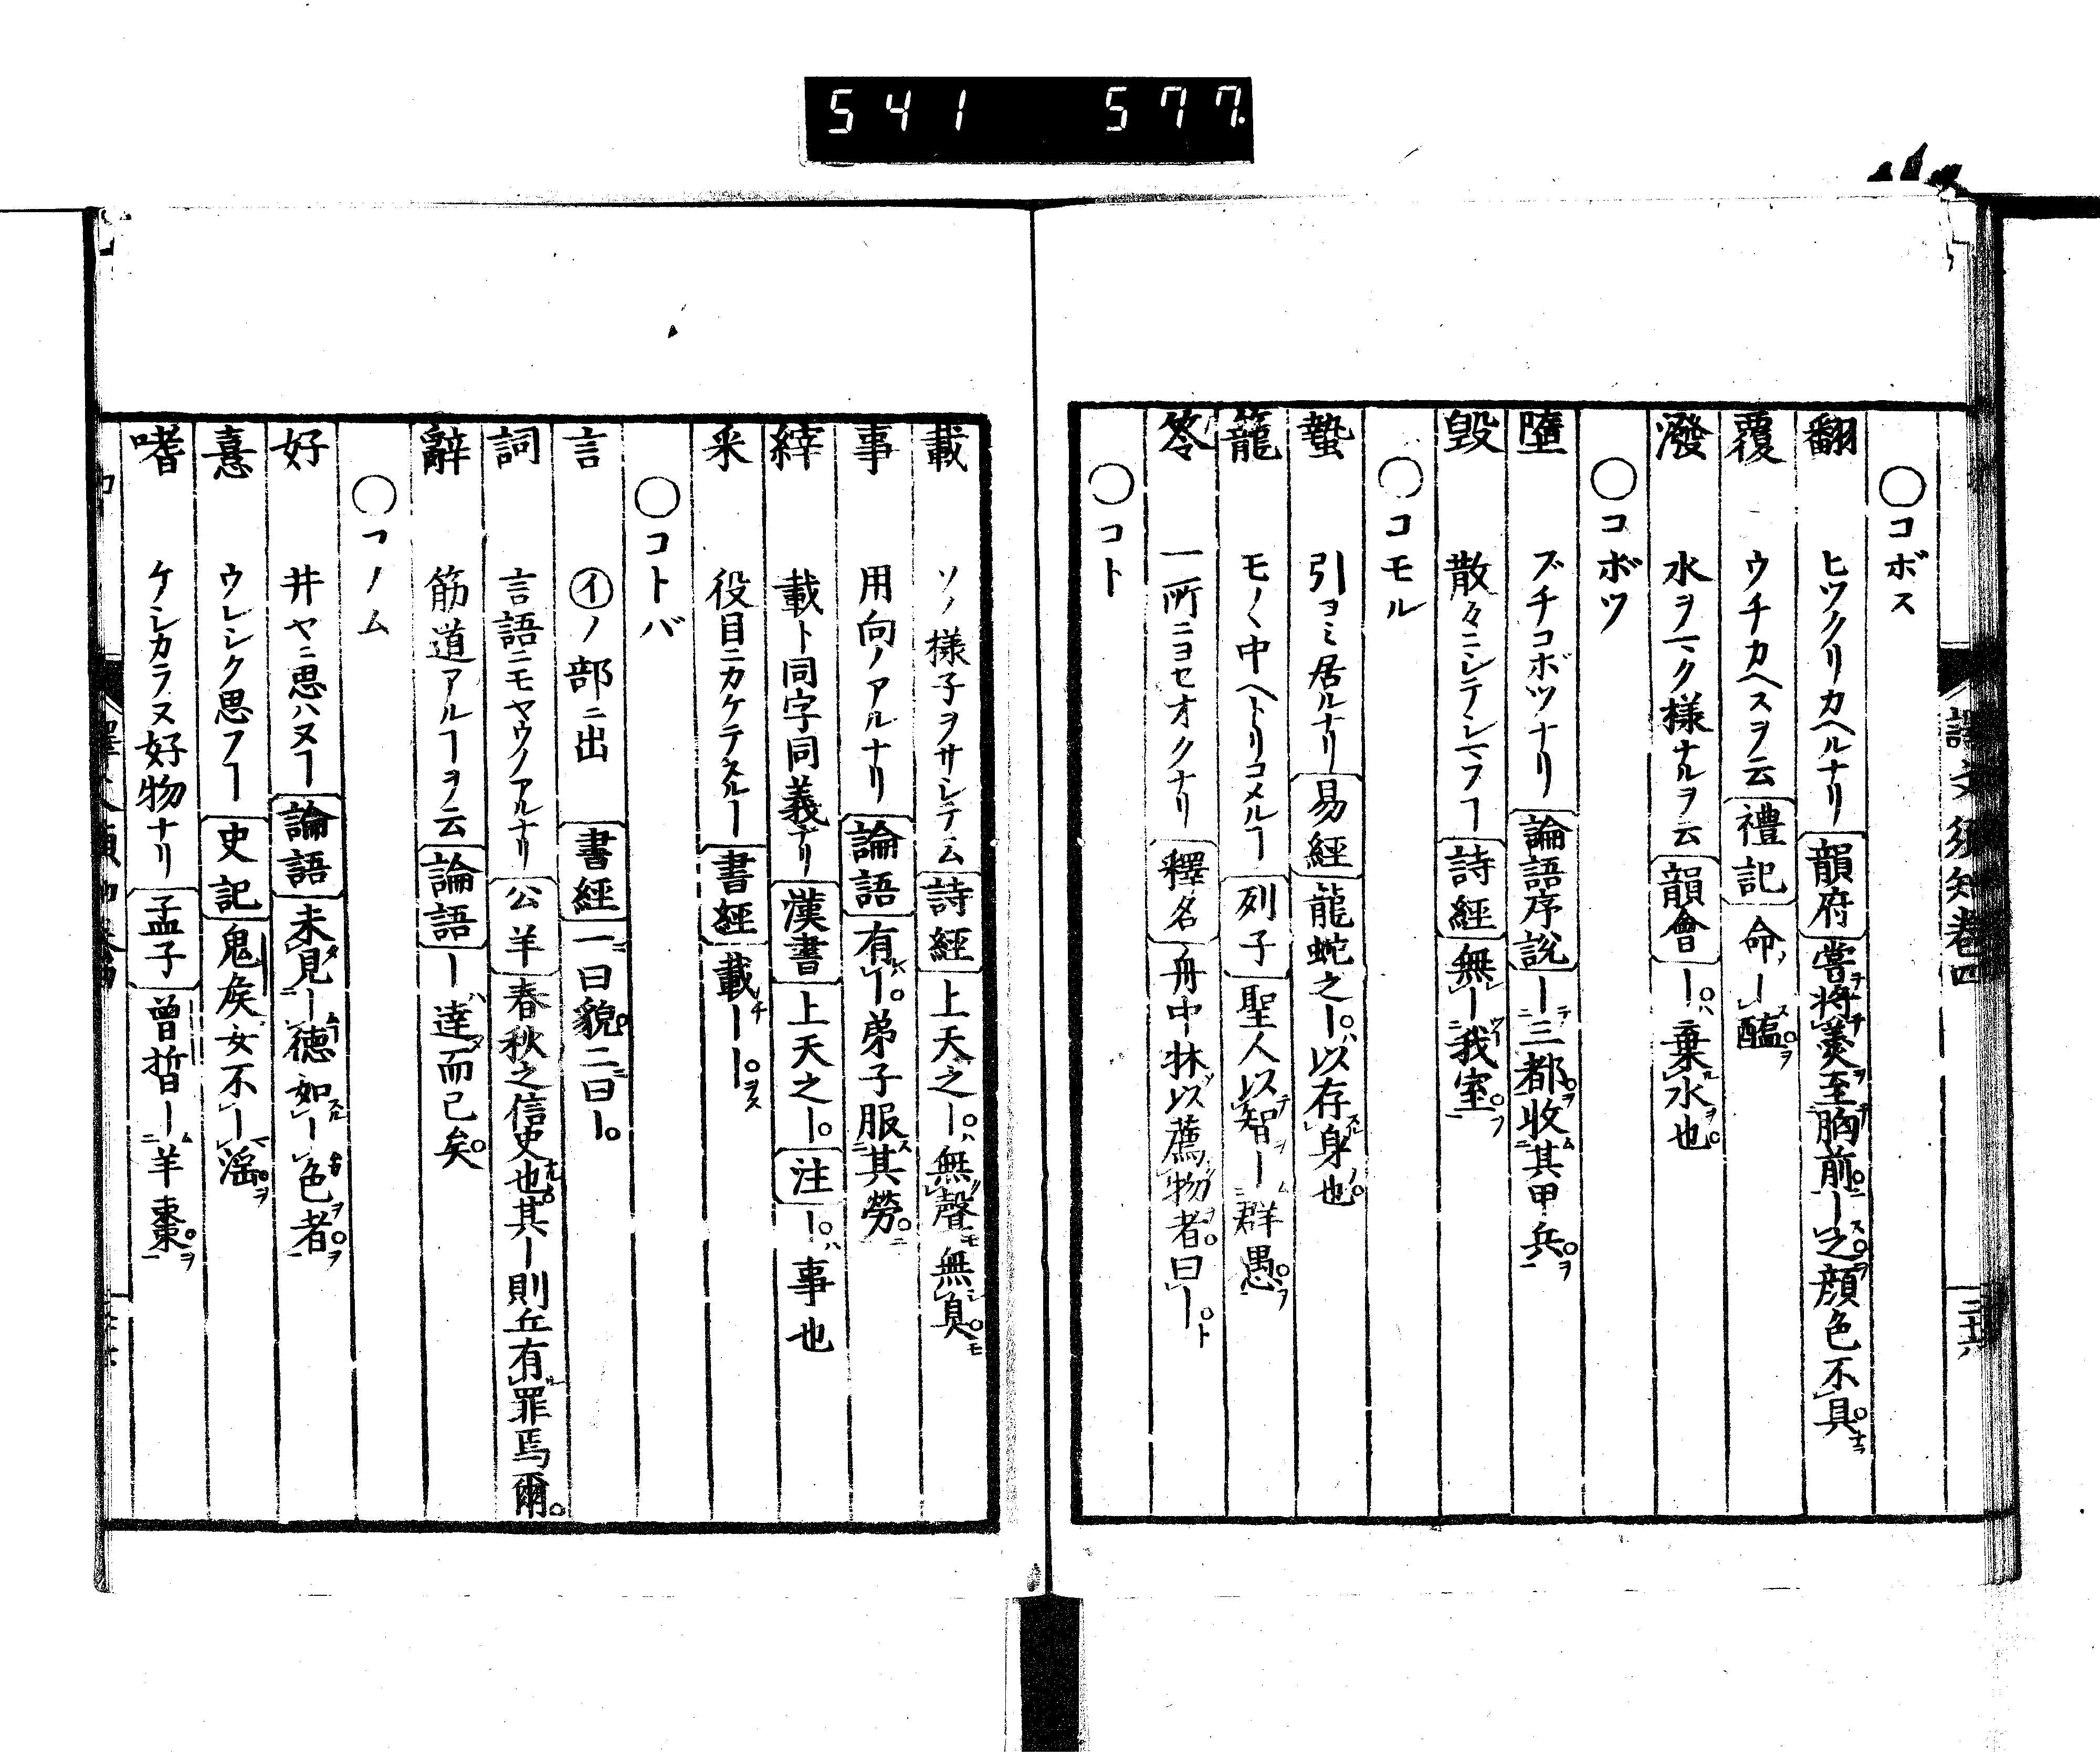 541 577
譯文須知巻四
三十六
○コボス
翻 ヒツクリカヘルナリ 韻府 嘗將羹至胸前ー之顔色不具
覆 ウチカヘスヲ云 禮記 命ー醢
潑 水ヲマク様ナルヲ云 韻會 ー棄水也
○コボツ
墮 ブチコボツナリ 論語序説 ー三都收其甲兵
毀 散々ニシテシマフヿ 詩經 無ー我室
○コモル
蟄 引コミ居ルナリ 易經 龍蛇之ー以存身也
籠 モノヽ中ヘトリコメルヿ 列子 聖人以智ー群愚
笭 一所ニヨセオクナリ 釋名 舟中牀以薦物者曰ー
○コト
載 ソノ様子ヲサシテ云 詩經 上天之ー無聲無臭
事 用向ノアルナリ 論語 有ー弟子服其勞
縡 載ト同字同義ナリ 漢書 上天之ー 注 ー事也
采 役目ニカケテスルヿ 書經 載ーー
○コトバ
言 ㋑ノ部ニ出 書經 一曰貌二曰ー
詞 言語ニモヤウノアルナリ 公羊 春秋之信史也其ー則丘有罪焉爾
辭 筋道アルヿヲ云 論語 ー達而已矣
○コノム
好 井ヤニ思ハヌヿ 論語 未見ー德如ー色者
憙 ウレシク思フヿ 史記 鬼矦女不ー淫
嗜 ケシカラヌ好物ナリ 孟子 曽晳ー羊棗